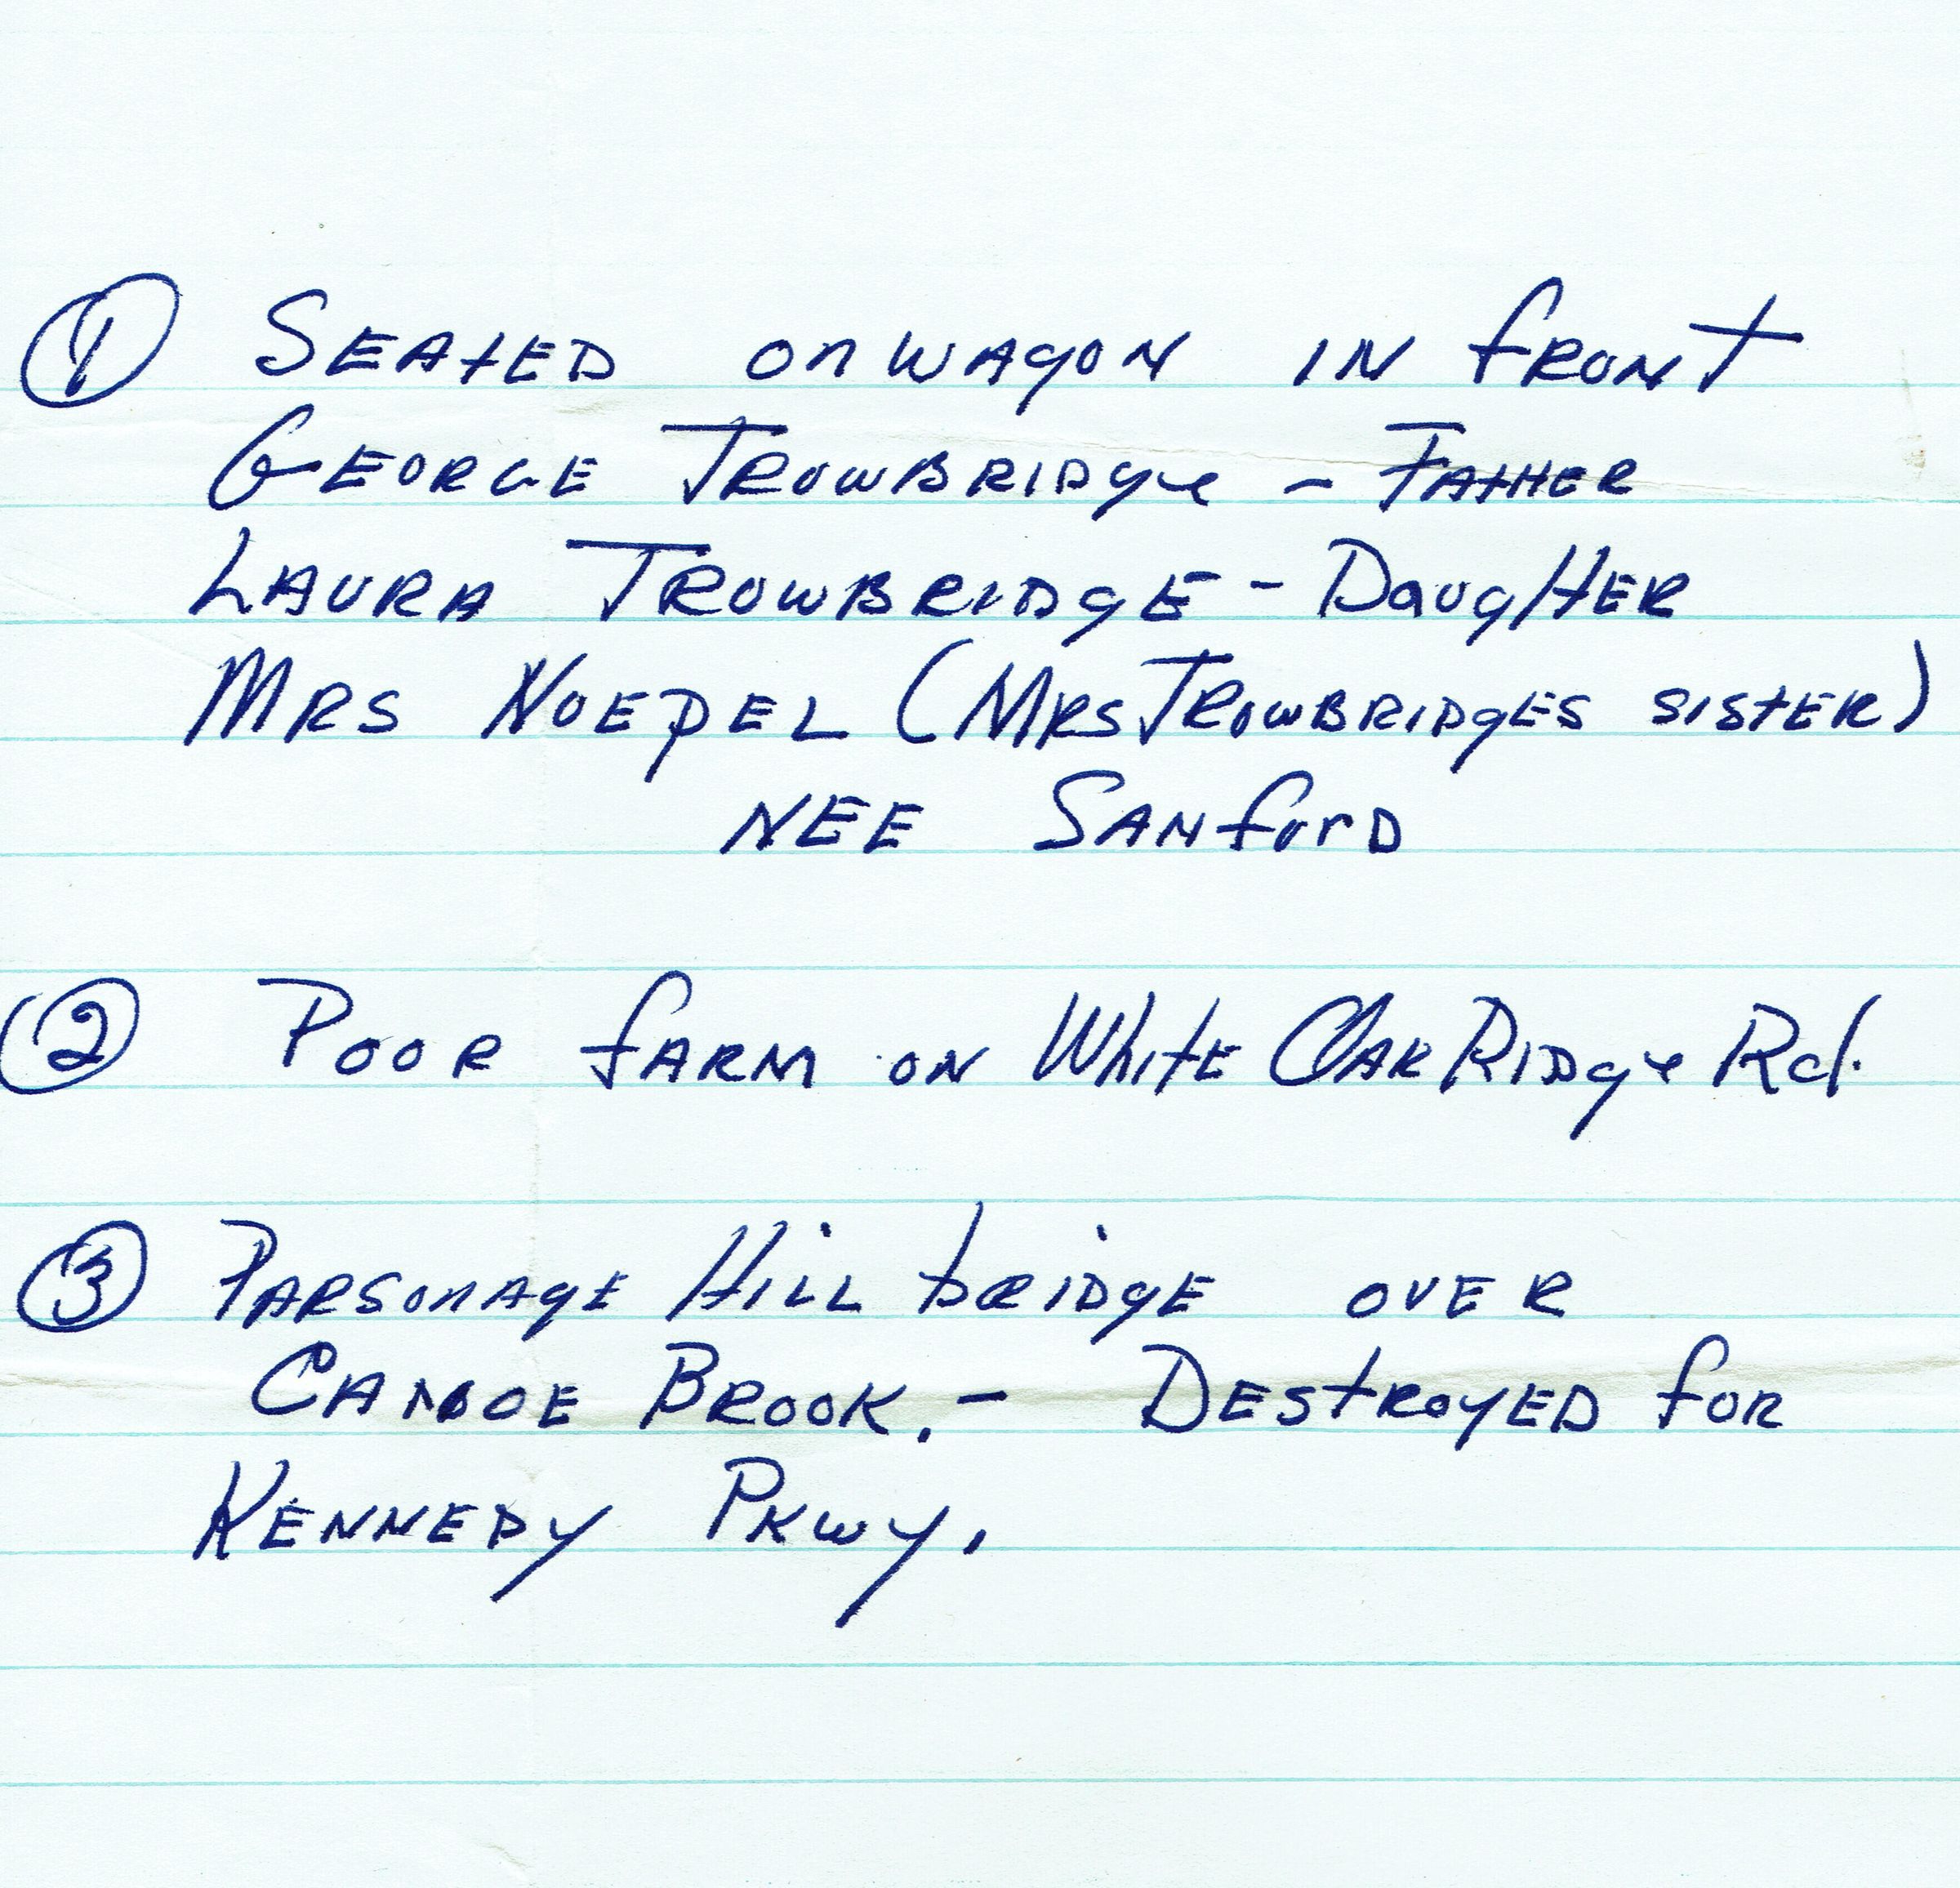 ① SEATED ON WAGON IN fRONT
GEORGE TROWBRIDge - FATHER
LAURA TROWBRIDgE - DaugHTER
MRS NOEPEL (MRS TROWBRIDgES SISTER)
NEE SANford
② POOR fARM ON WhitE OAK RIDge Rd.
③ PARSONAgE HiLL bRiDgE OVER
CANOE BROOK. - DESTROYED fOR
KENNEDY PKWY.